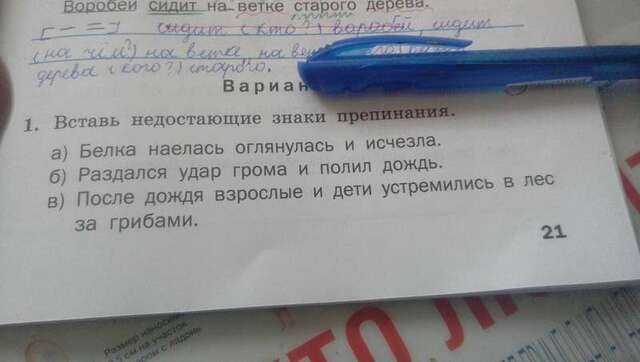 Воробей сидит на ветке старого дерева.
сидит (кто?) воробей, сидит
(на чём?) на ветке на
дерева (кого?) старого.
Вариан
1. Вставь недостающие знаки препинания.
а) Белка наелась оглянулась и исчезла.
б) Раздался удар грома и полил дождь.
в) После дождя взрослые и дети устремились в лес
за грибами.
21
Размер
см на участок
с ладонь